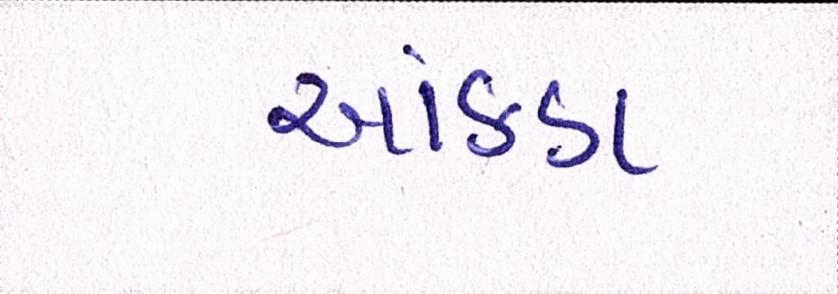 આંકડા